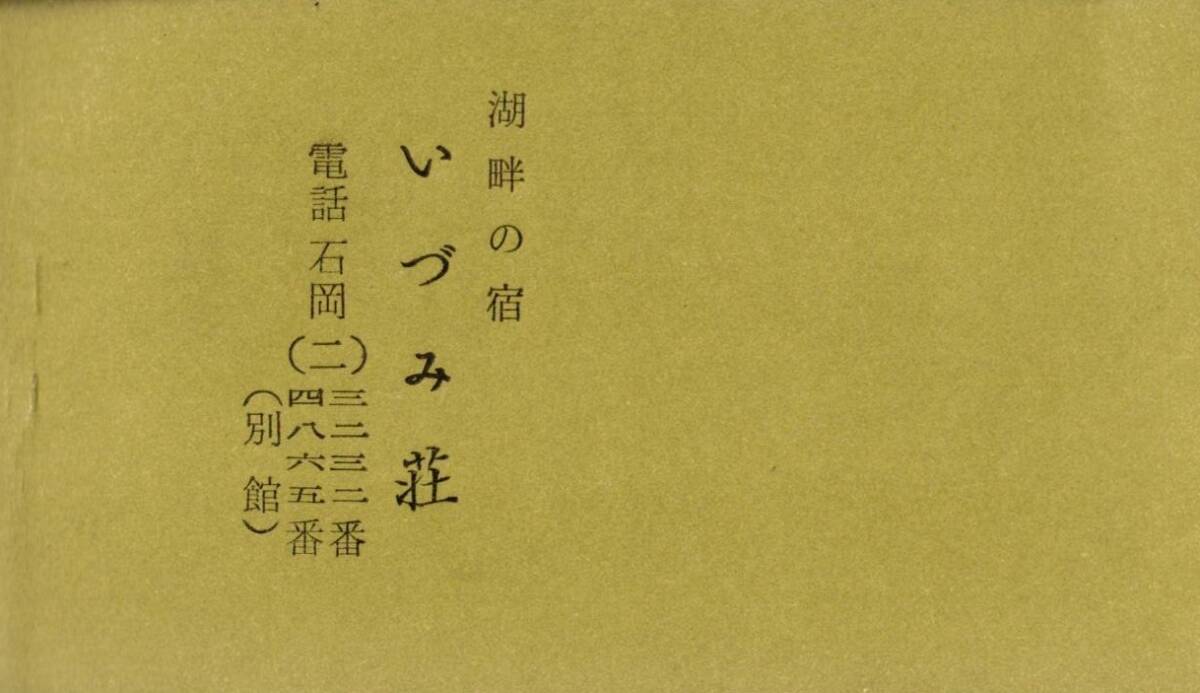 湖畔の宿
いづみ荘
電話石岡(二)三二三二番
四八六五番
(別館)